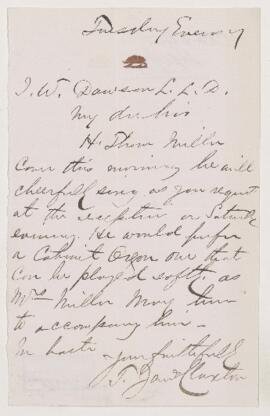 Tuesday Evening
J. W. Dawson L.L.D.
My dear Sir
H. Thom Miller
Came this morning he will
cheerfully sing as you request
at the reception on Saturday
evening. He would prefer
a Cabinet Organ one that
can be played softly, as
Mrs Miller may have
to accompany him –
In haste
yours faithfully
T. Jas Claxton